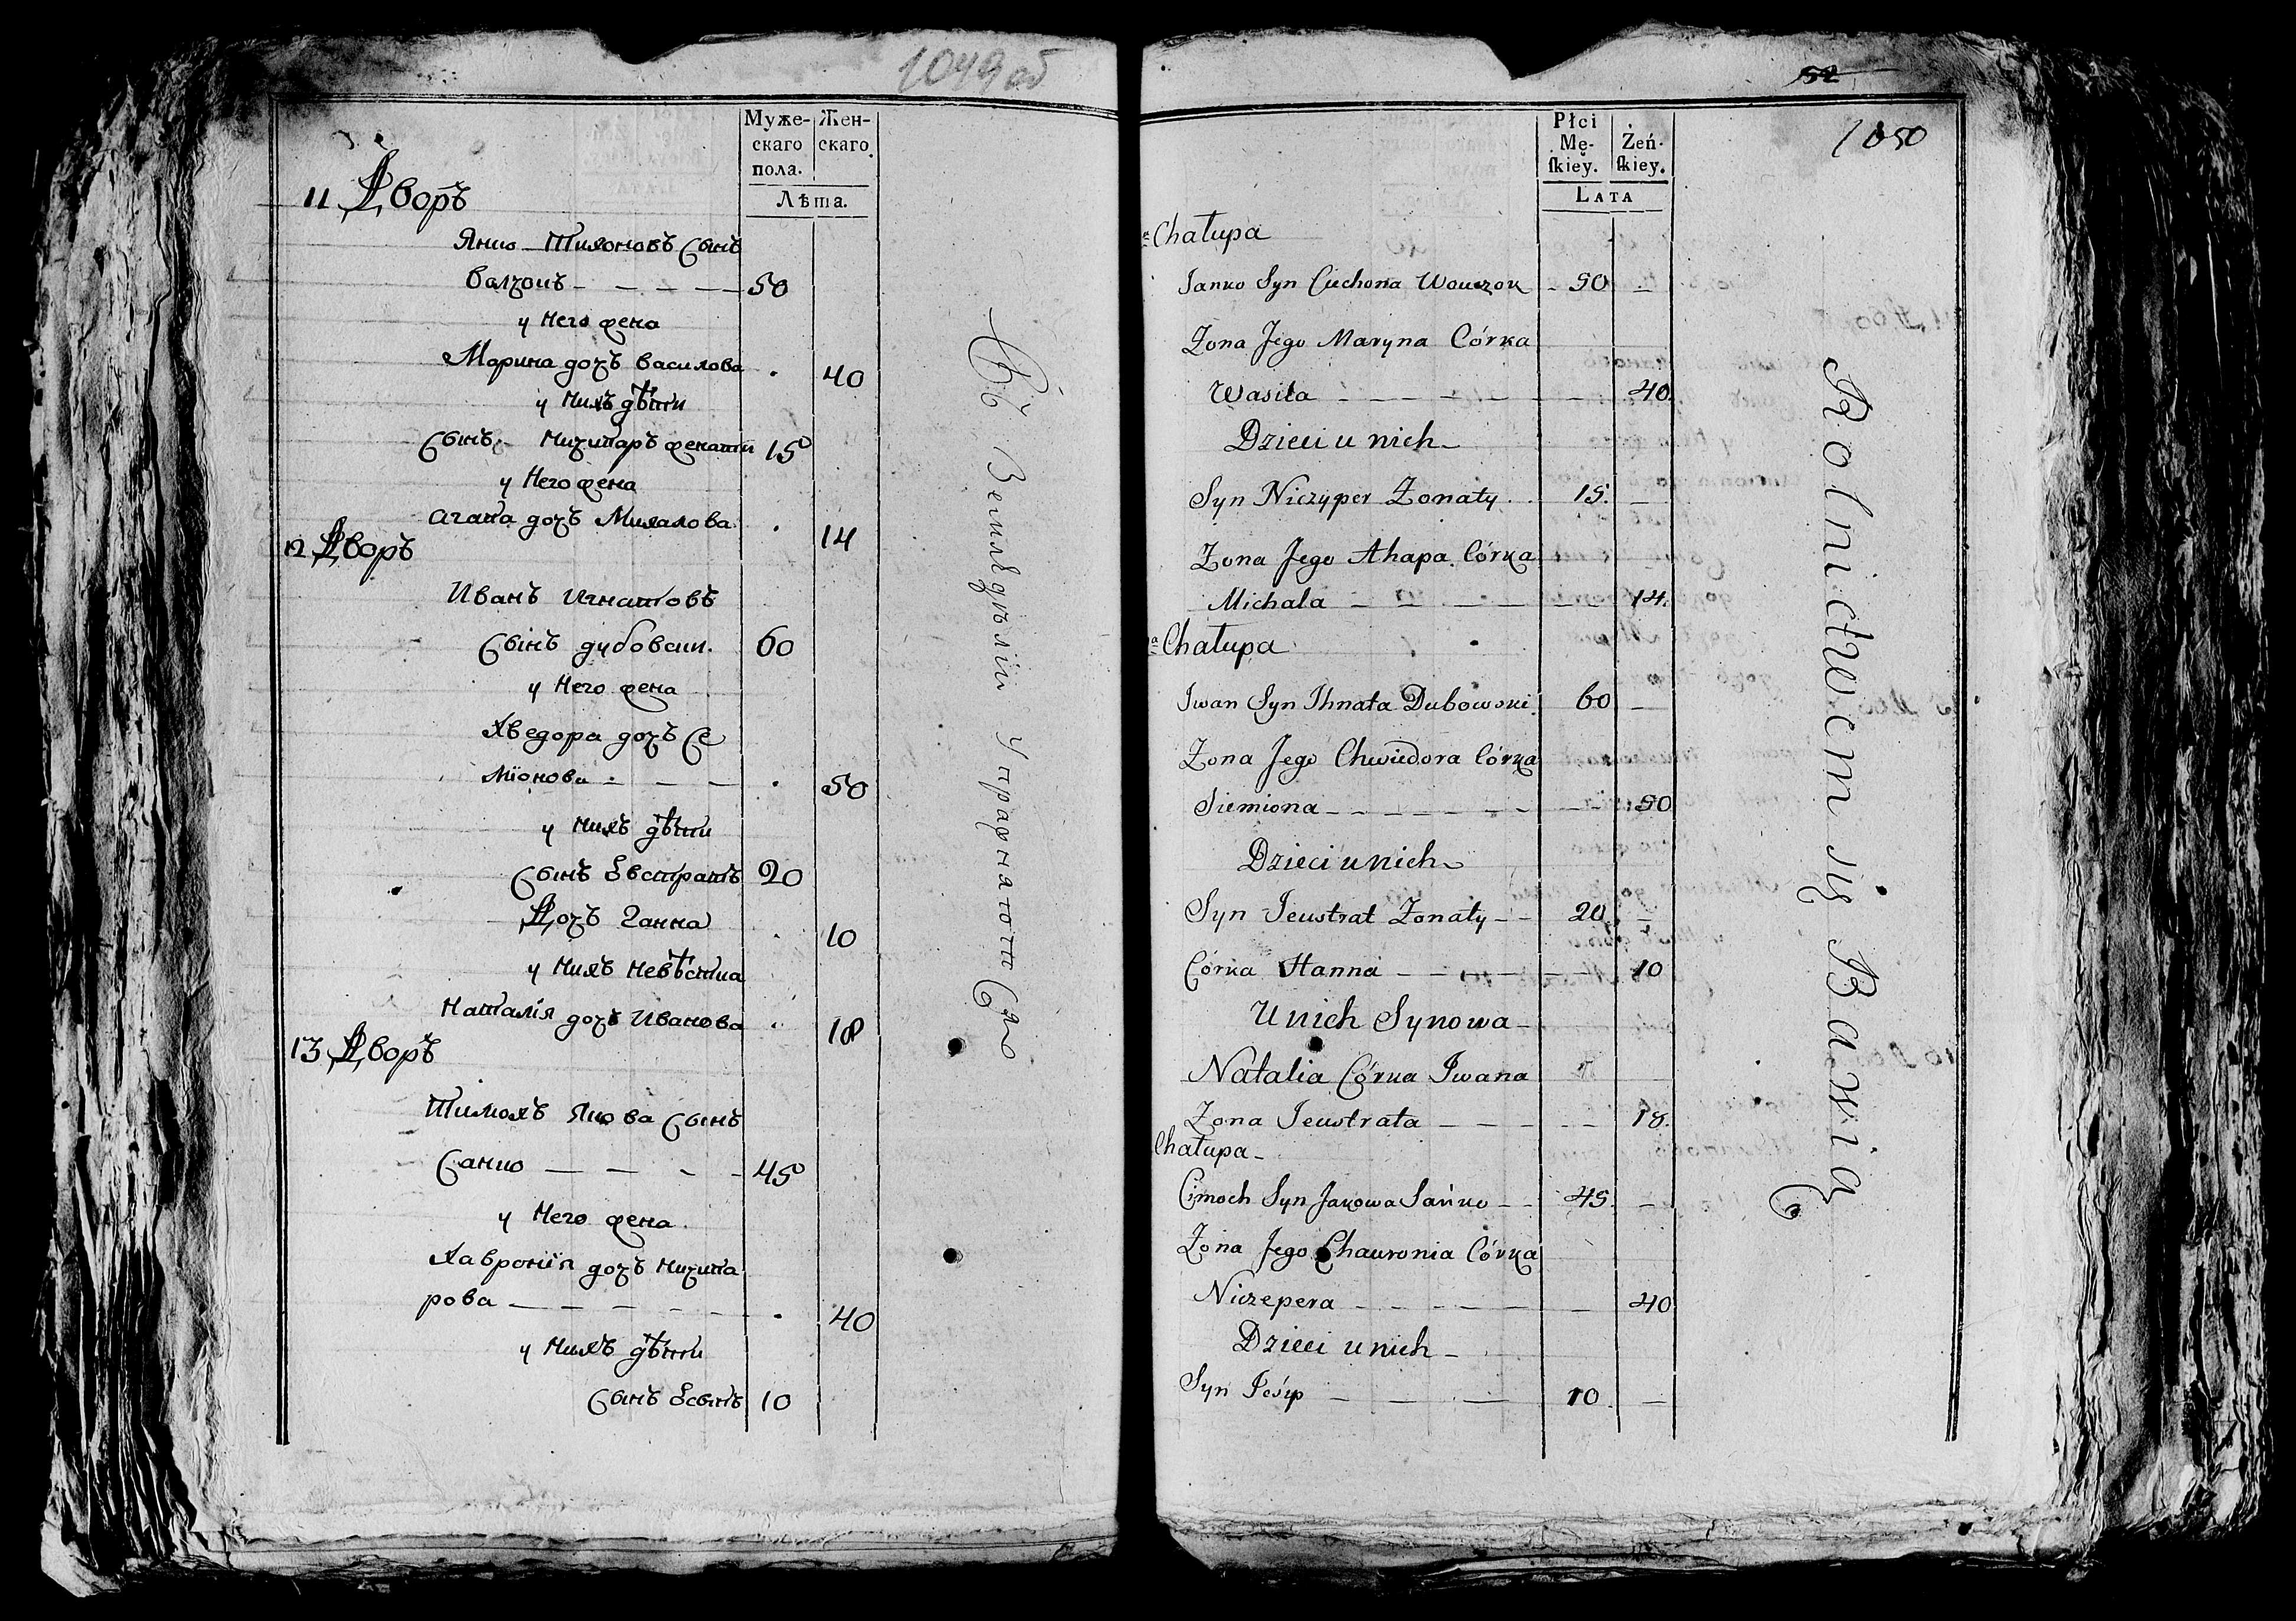 1049 об
Муже-
скаго
пола.
Жен-
скаго
Лѣта.
11 Дворъ
Янко Тихоновъ Сынъ
Валчокъ - - - - 50
у Него жена
Марина дочъ Василова . 40
у Нихъ дѣти
Сынъ Ничипаръ женатъ 15
у Него жена
Агапа дочъ Михалова . 14
12 Дворъ
Иванъ Игнатовъ
Сынъ дубовски. 60
у Него жена
Хведора дочъ Се
міонова - - - . 50
у Нихъ дѣти
Сынъ Евстратъ 20
Дочъ Ганна . 10
у Нихъ Невѣстка
Наталія дочъ Иванова . 18
13 Дворъ
Тимохъ Якова Сынъ
Санко - - - - 45
у Него жена
Хавронія дочъ Ничипа
рова - - - - - . 40
у Нихъ дѣти
Сынъ Есыпъ 10
Въ Земледѣліи Упражнаютъ Ся
52
1050
Płci
Mę-
ſkiey.
Żeń-
ſkiey.
LATA
Chałupa
Janko Syn Ciechona Wouczok - 50 -
Zona Jego Maryna Córka
Wasila - - - - - - 40
Dzieci u nich
Syn Niczyper Zonaty . 15. -
Zona Jego Ahapa Córka
Michala - - - - - 14.
Chałupa
Iwan Syn Ihnata Dubowski 60 -
Zona Jego Chwiedora Córka
Siemiona - - - - - - - 50
Dzieci u nich
Syn Jeustrat Zonaty - - 20. -
Córka Hanna - - - - - 10
U nich Synowa -
Natalia Córka Iwana
Zona Jeustrata - - - - - 18.
Chałupa -
Cimoch Syn Jakowa Sańko - - 45. -
Zona Jego Chauronia Córka
Niczepera - - - - - - 40
Dzieci u nich -
Syn Jesip - - - - 10 -
Rolnictwem się Bawią